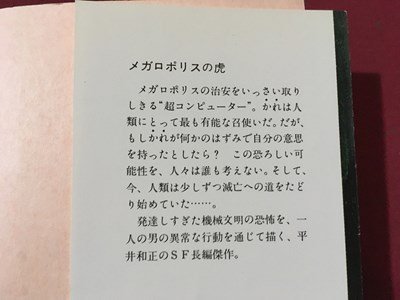 メガロポリスの虎
メガロポリスの治安をいっさい取り
しきる“超コンピューター”。かれは人
類にとって最も有能な召使いだ。だが、
もしかれが何かのはずみで自分の意思
を持ったとしたら？　この恐ろしい可
能性を、人々は誰も考えない。そして、
今、人類は少しずつ滅亡への道をたど
り始めていた……。
発達しすぎた機械文明の恐怖を、一
人の男の異常な行動を通じて描く、平
井和正のＳＦ長編傑作。